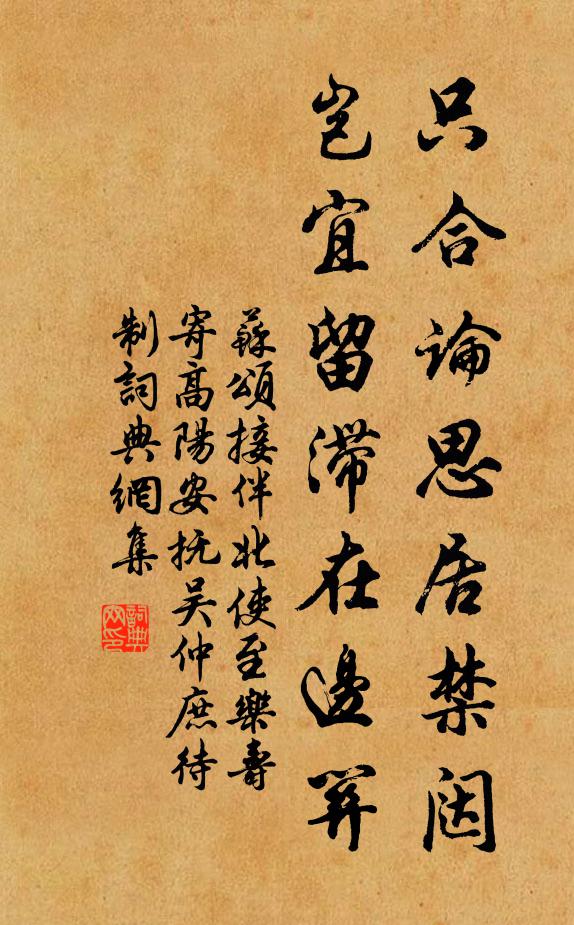 只合論思居禁闼
豈宜留滯在邊笄
蘇頌接伴北使至樂壽
寄高陽安抚吴仲庶待
制詞典網集
詞典网印